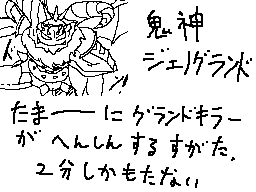 鬼神
ジェノグランド
たまーーにグランドキラー
がへんしんするすがた.
2分しかもたない